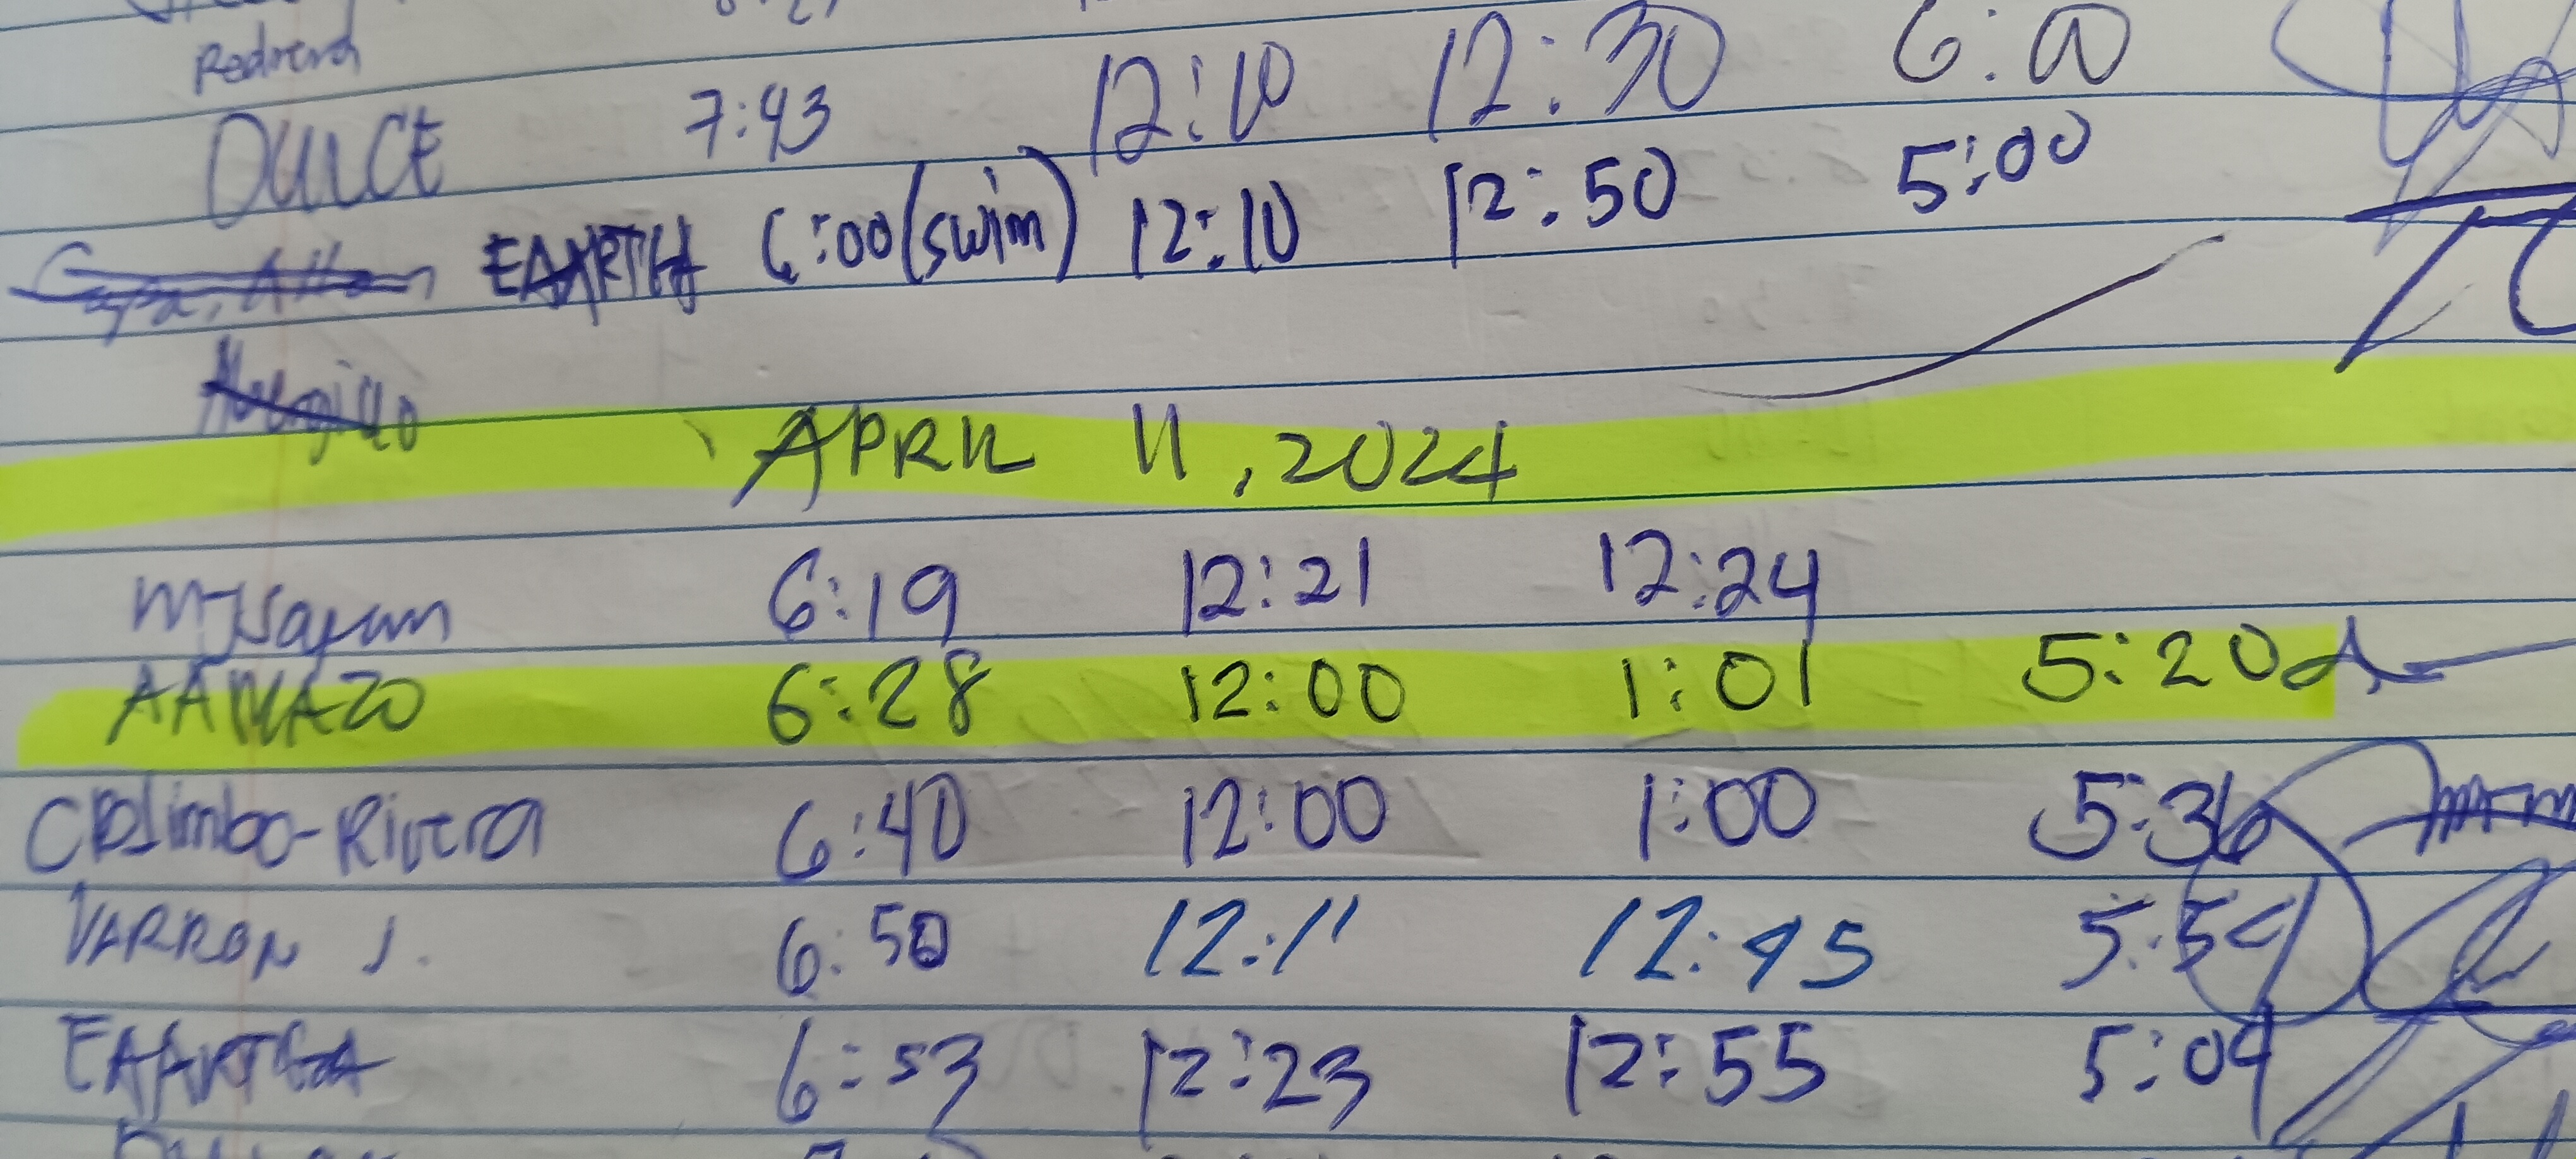 DULCE 7:43 12:10 12:30 6:00
EAARTEA 6:00 (swim) 12:10 12:50 5:00
APRIL 11, 2024
6:19 12:21 12:24
6:28 12:00 1:01 5:20
CBLimbo-Rivera 6:40 12:00 1:00 5:36
VARRON J. 6:50 12:11 12:45 5:54
EAARTEA 6:53 12:23 12:55 5:04